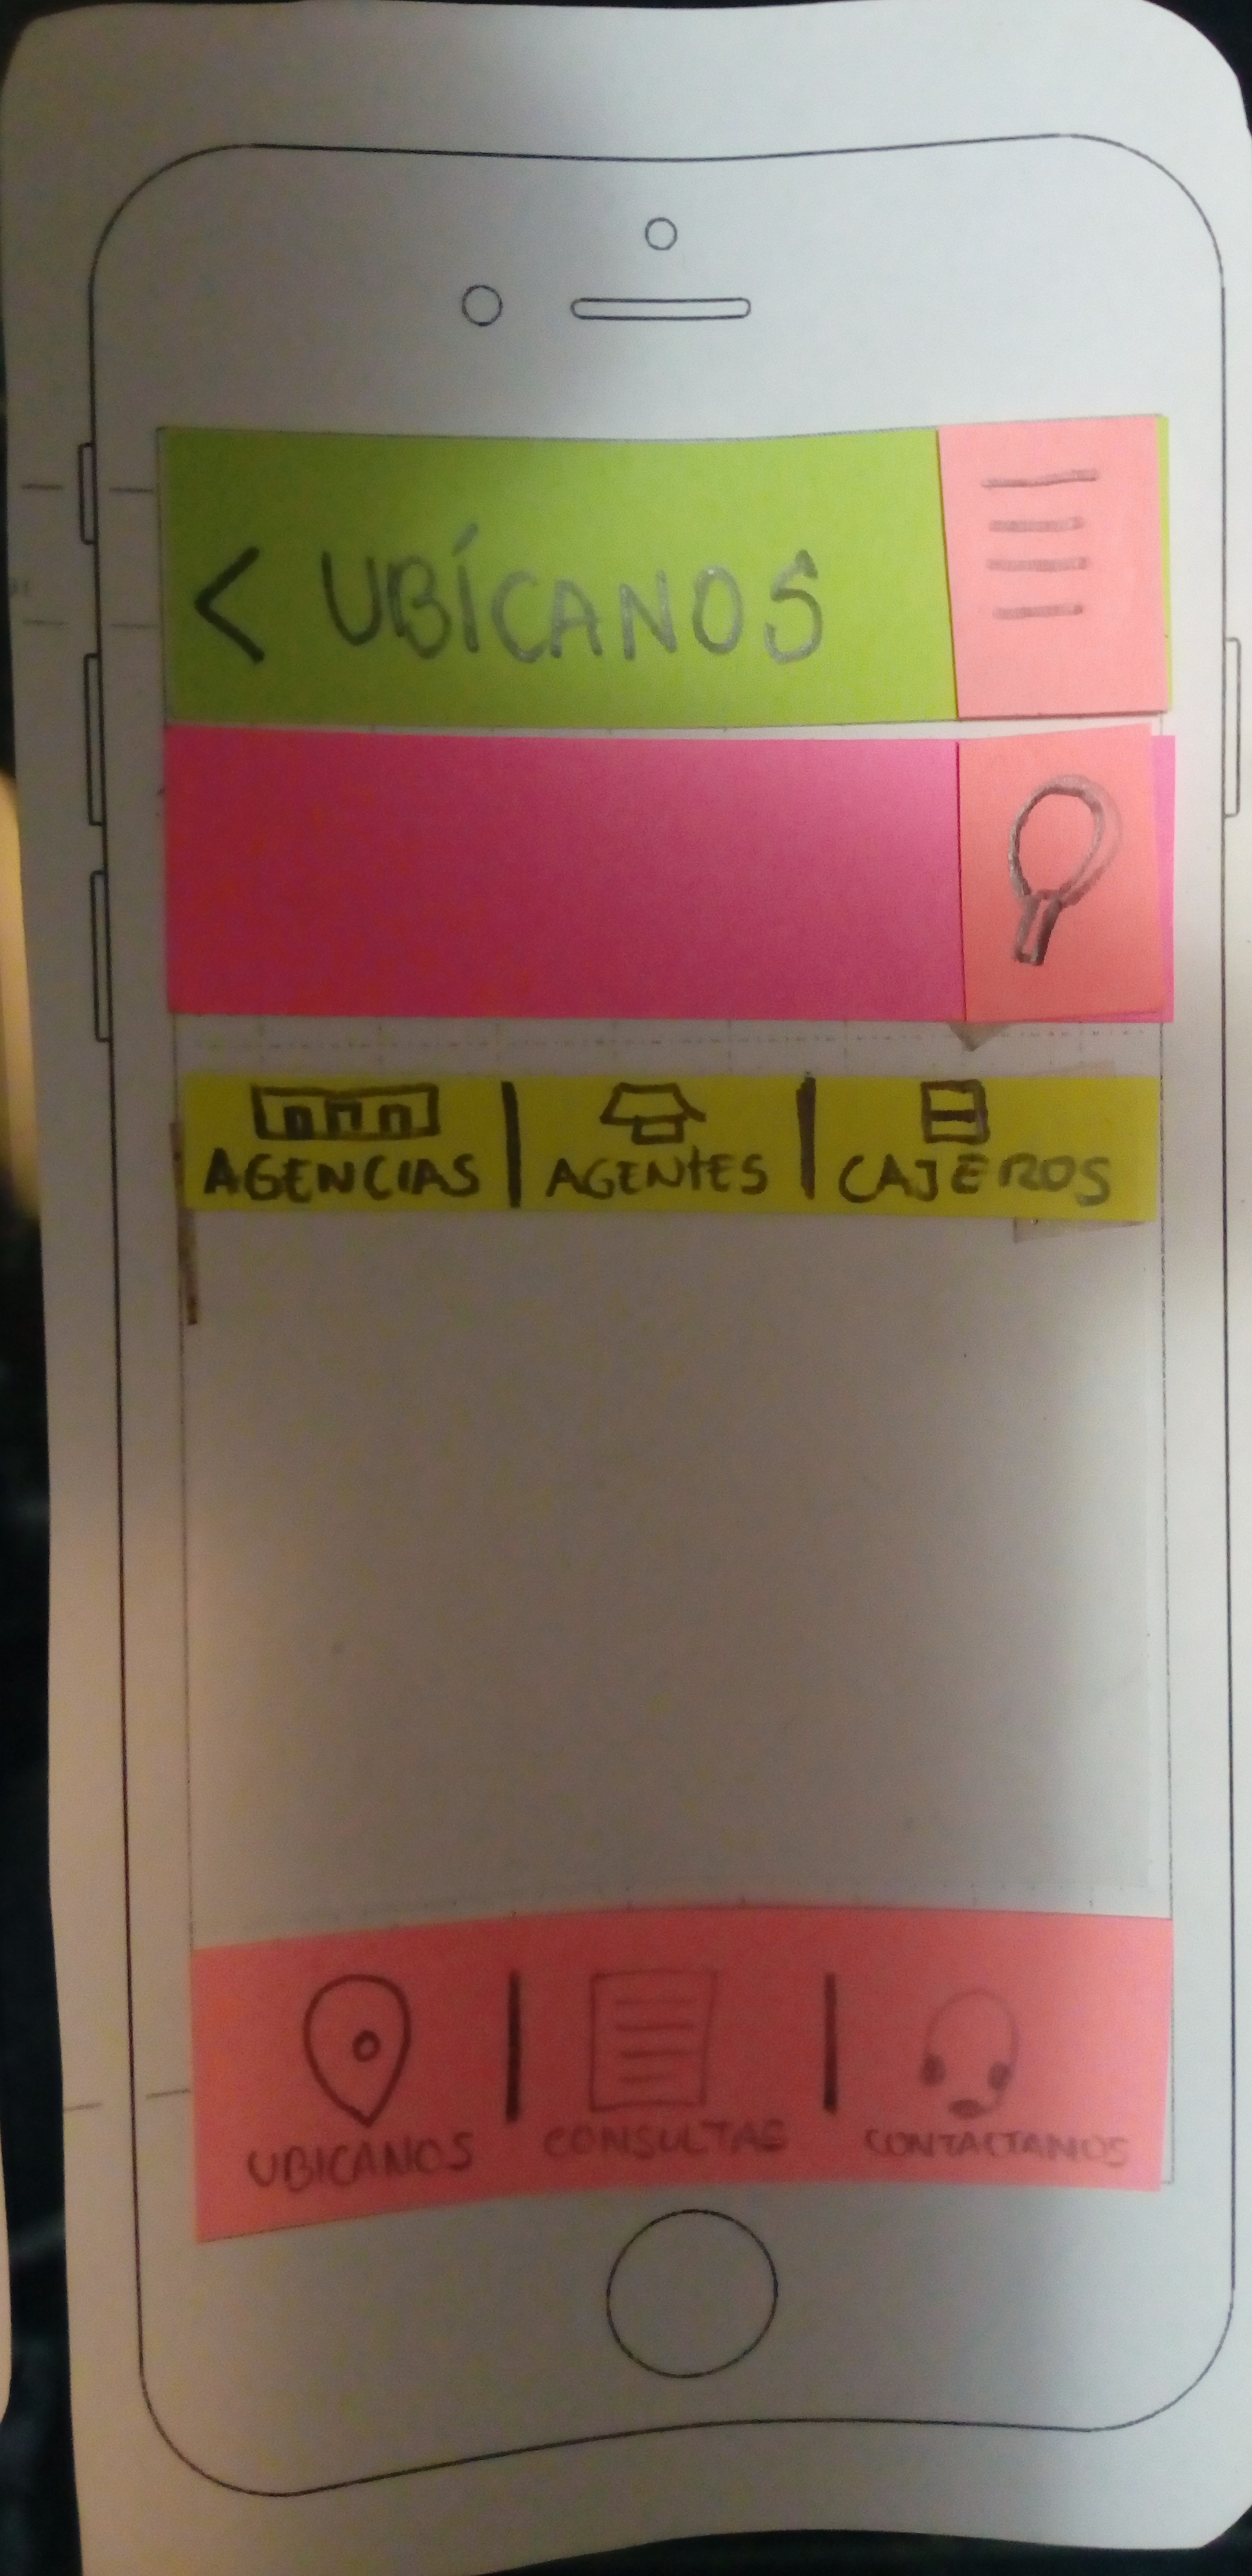 < UBÍCANOS
AGENCIAS | AGENTES | CAJEROS
UBICANOS | CONSULTAS | CONTACTANOS